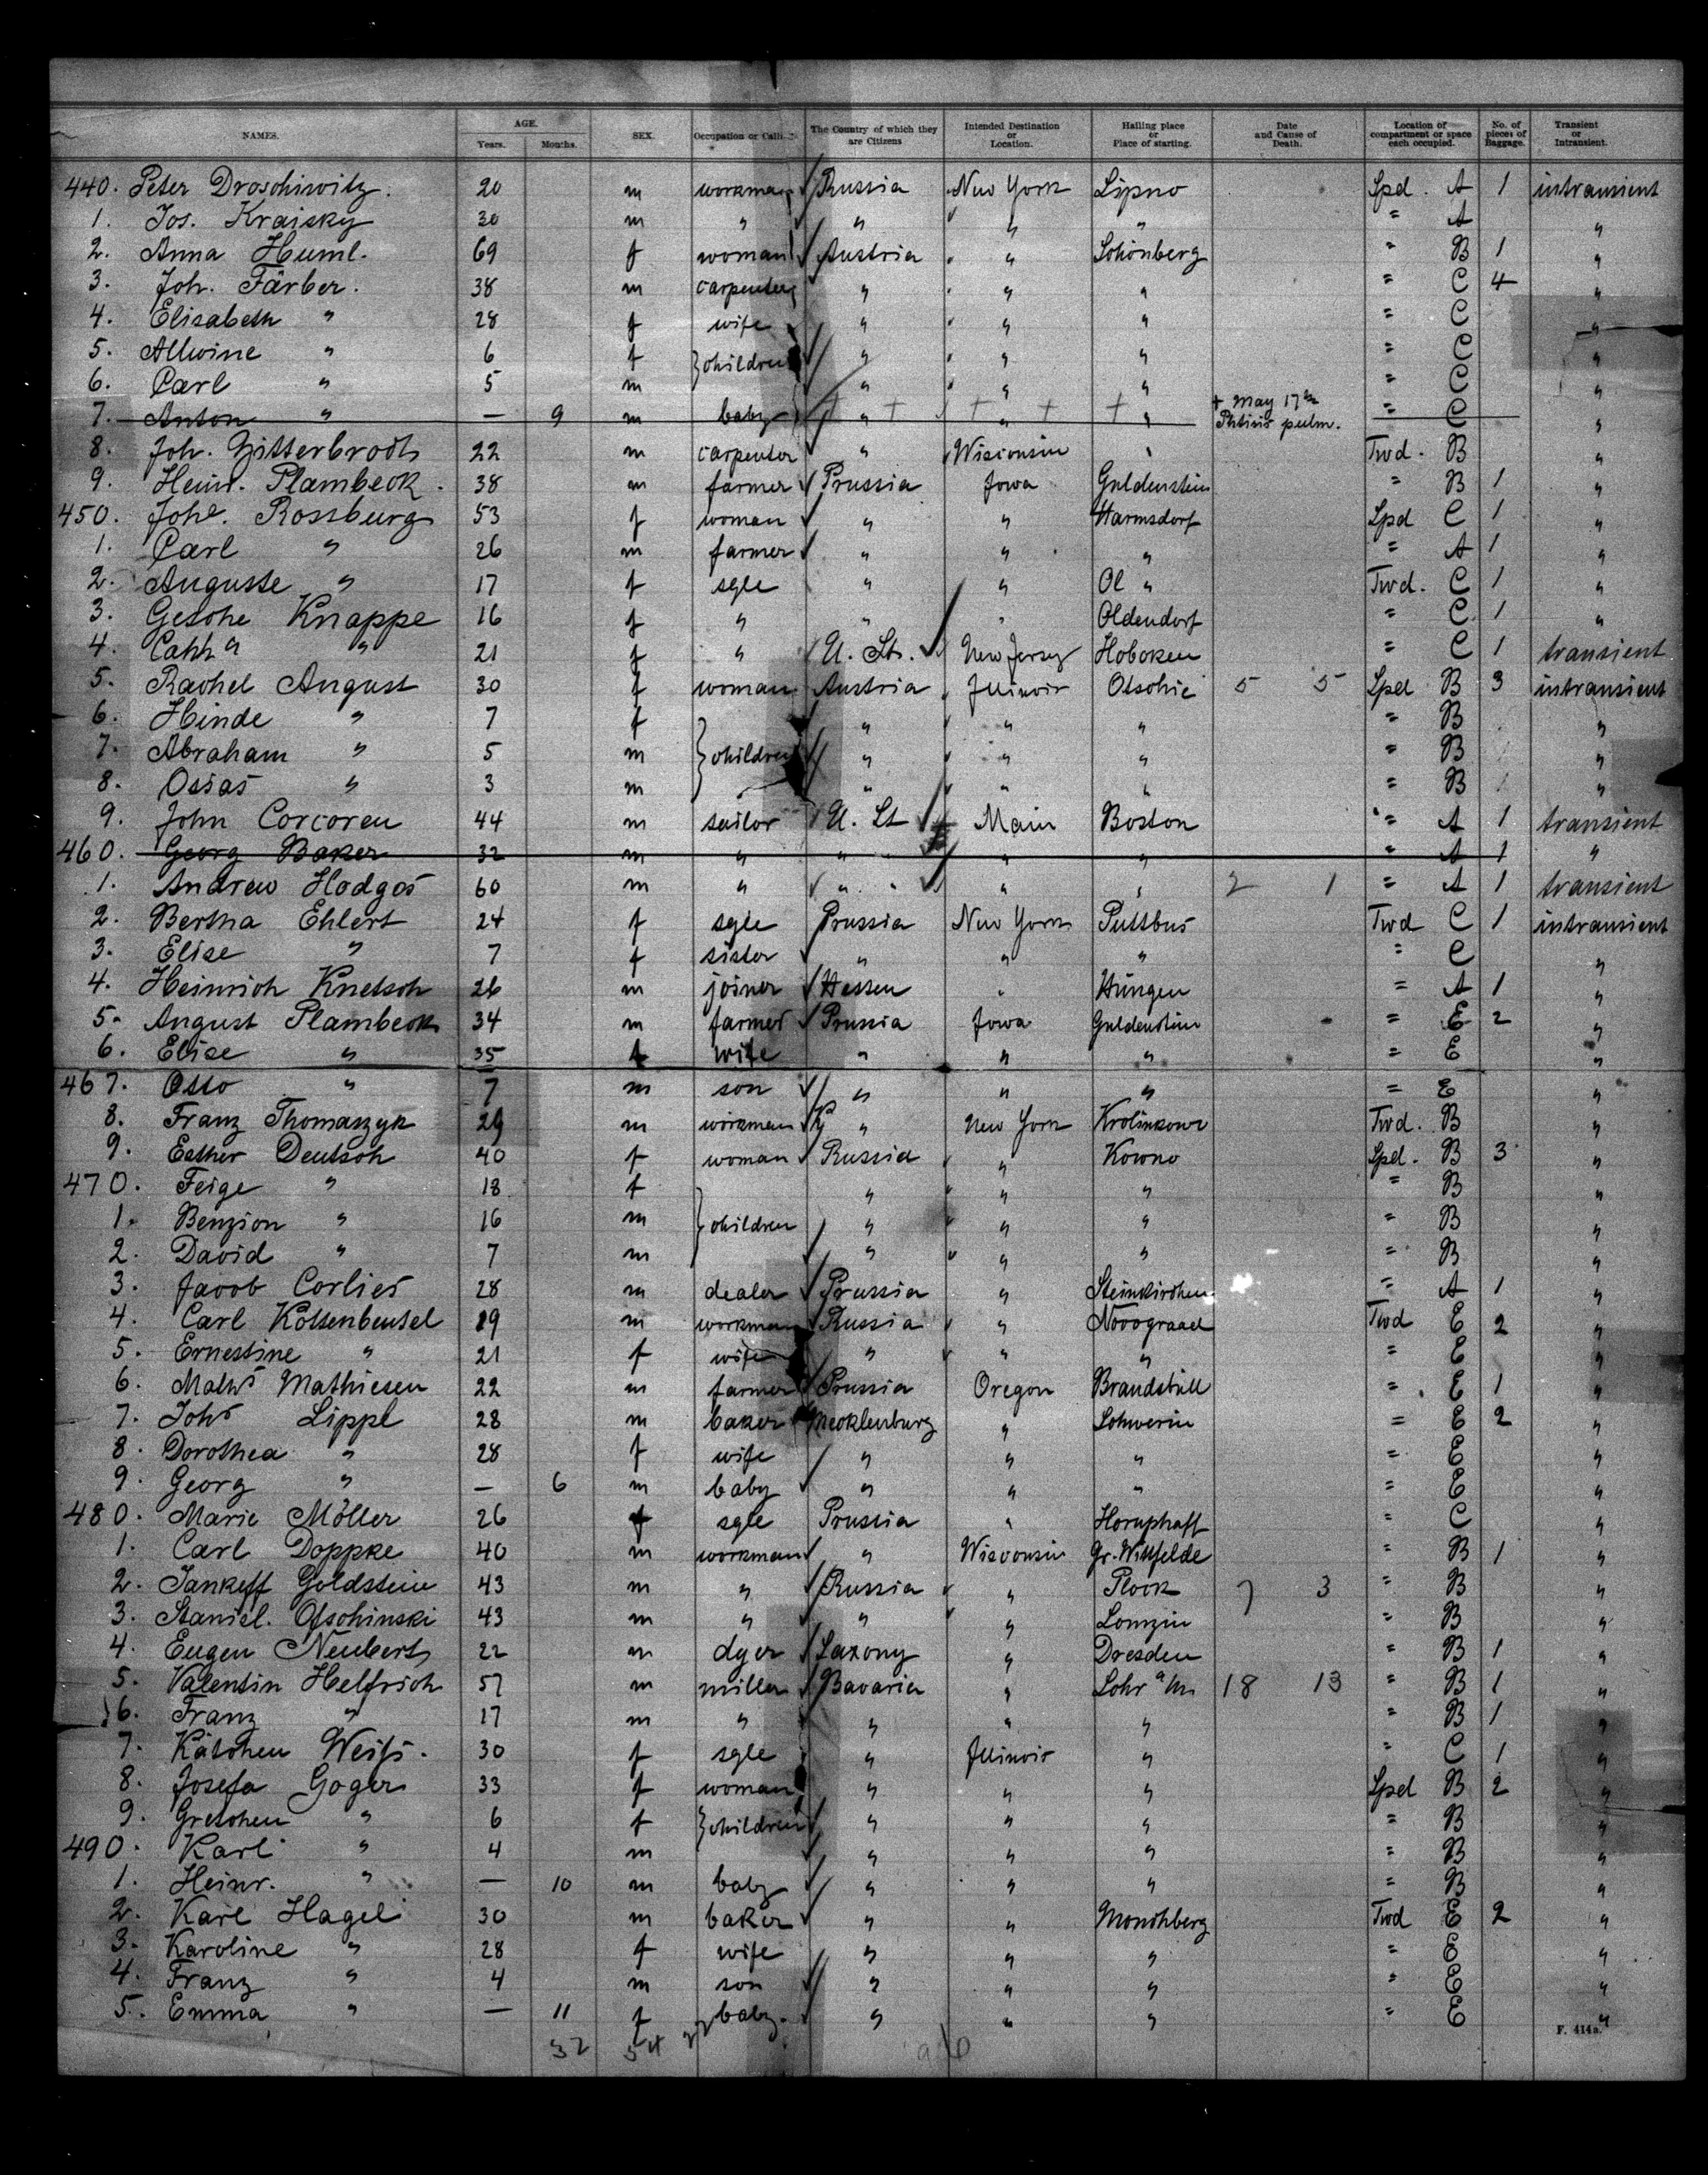 NAMES. AGE. SEX. Occupation or Calli The Country of which they are Citizens Intended Destination or Location. Hailing place or Place of starting. Date and Cause of Death. Location of compartment or space each occupied. No. of pieces of Baggage. Transient or Intransient.
Years. Months.
440. Peter Droschiwitz. 20 m workman Russia New York Lipno Spd. A 1 intransient
1. Jos. Kraisky 30 m " " " " " A "
2. Anna Huml. 69 f woman Austria " Schönberg " B 1 "
3. Joh. Färber. 38 m carpenter " " " " C 4 "
4. Elisabeth " 28 f wife " " " " C "
5. Allwine " 6 f } children " " " " C "
6. Carl " 5 m " " " " C "
7. Anton " — 9 m baby " " " + May 17th Phtisis pulm. " C "
8. Joh. Zitterbrodt 22 m carpenter " Wisconsin " Twd. B "
9. Heinr. Plambeck. 38 m farmer Prussia Iowa Guldenstein " B 1 "
450. Johe. Rossburg 53 f woman " " Harmsdorf Spd C 1 "
1. Carl " 26 m farmer " " " " A 1 "
2. Auguste " 17 f sgle " " Ol " Twd. C 1 "
3. Gesche Knappe 16 f " " " Oldendorf " C 1 "
4. Cath a " 21 f " U. Sts. New Jersey Hoboken " C 1 transient
5. Rachel August 30 f woman Austria Illinois Otschie 5 5 Spd B 3 intransient
6. Hinde " 7 f " " " " B "
7. Abraham " 5 m } children " " " " B "
8. Osias " 3 m " " " " B "
9. John Corcoren 44 m sailor U. St Main Boston " A 1 transient
460. Georg Baker 32 m " " " " " A 1 "
1. Andrew Hodgos 60 m " " " " 2 1 " A 1 transient
2. Bertha Ehlert 24 f sgle Prussia New York Puttbus Twd C 1 intransient
3. Elise " 7 f sister " " " " C "
4. Heinrich Knetsch 26 m joiner Hessen " Hüngen " A 1 "
5. August Plambeck 34 m farmer Prussia Iowa Guldenstein " E 2 "
6. Elise " 35 f wife " " " " E "
467. Otto " 7 m son " " " " E "
8. Franz Thomaszyk 29 m workman " New York Krolinkowe Twd. B "
9. Esther Deutsch 40 f woman Russia " Kowno Spd. B 3 "
470. Feige " 18 f " " " " B "
1. Benzion " 16 m } children " " " " B "
2. David " 7 m " " " " B "
3. Jacob Corlies 28 m dealer Prussia " Steinkirchen " A 1 "
4. Carl Kottenbeutel 29 m workman Russia " Novograad Twd E 2 "
5. Ernestine " 21 f wife " " " " E "
6. Maths Mathiesen 22 m farmer Prussia Oregon Brandsbüll " E 1 "
7. Johs Lippe 28 m baker Mecklenburg " Schwerin " E 2 "
8. Dorothea " 28 f wife " " " " E "
9. Georg " — 6 m baby " " " " E "
480. Marie Möller 26 f sgle Prussia " Horuphaff " C "
1. Carl Doppke 40 m workman " Wisconsin Gr. Wittfelde " B 1 "
2. Jankeff Goldstein 43 m " Russia " Plock 7 3 " B "
3. Stanisl. Otschinski 43 m " " " Lomzin " B "
4. Eugen Neubert 22 m dyer Saxony " Dresden " B 1 "
5. Valentin Helfrich 57 m miller Bavaria " Lohr a/m 18 13 " B 1 "
6. Franz " 17 m " " " " " B 1 "
7. Kätchen Weiss. 30 f sgle " Illinois " " C 1 "
8. Josefa Goger 33 f woman " " " Spd B 2 "
9. Gretchen " 6 f } children " " " " B "
490. Karl " 4 m " " " " B "
1. Heinr. " — 10 m baby " " " " B "
2. Karl Hagel 30 m baker " " Mönchberg Twd E 2 "
3. Karoline " 28 f wife " " " " E "
4. Franz " 4 m son " " " " E "
5. Emma " — 11 f baby. " " " " E "
F. 414a.
32 54